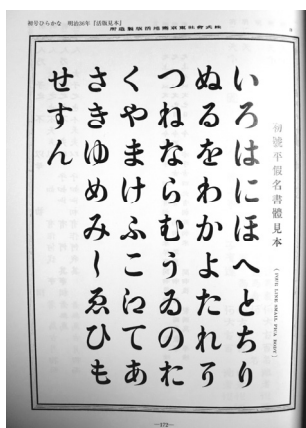 初号ひらかな 明治36年『活版見本』
株式會社東京築地活版製造所
初號平假名書體見本
(FOUR LINE SMALL PICA BODY)
いろはにほへとちり
ぬるをわかよたれそ
つねならむうゐのお
くやまけふこえてあ
さきゆめみしゑひも
せすん
—172—